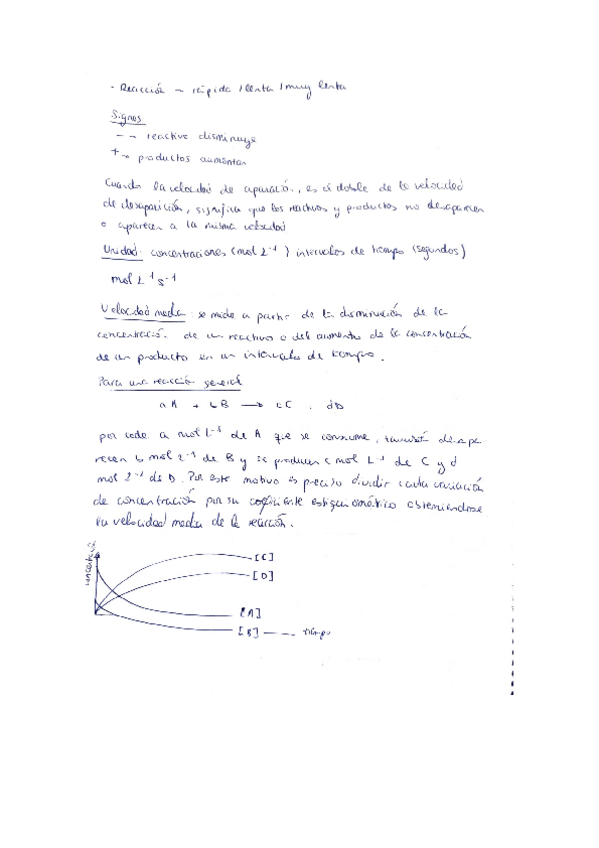 - Reacción → rápida / lenta / muy lenta
Signos
- → reactivo disminuye
+ → productos aumentan
Cuando la velocidad de aparación, es el doble de la velocidad
de desaparición, significa que los reactivos y productos no desaparecen
o aparecen a la misma velocidad
Unidad: concentraciones (mol L⁻¹) intervalos de tiempo (segundos)
mol L⁻¹ s⁻¹
Velocidad media: se mide a partir de la disminución de la
concentració. de un reactivo o del aumento de la concentración
de un producto en un intervalo de tiempo.
Para una reacción general
aA + bB → cC + dD
por cada a mol L⁻¹ de A que se consume, también desapa
recen b mol L⁻¹ de B y se producen c mol L⁻¹ de C y d
mol L⁻¹ de D. Por este motivo es preciso dividir cada variación
de concentración por su coeficiente estequiométrico obteniéndose
la velocidad media de la reacción.
concentració
[C]
[D]
[A]
[B]
tiempo